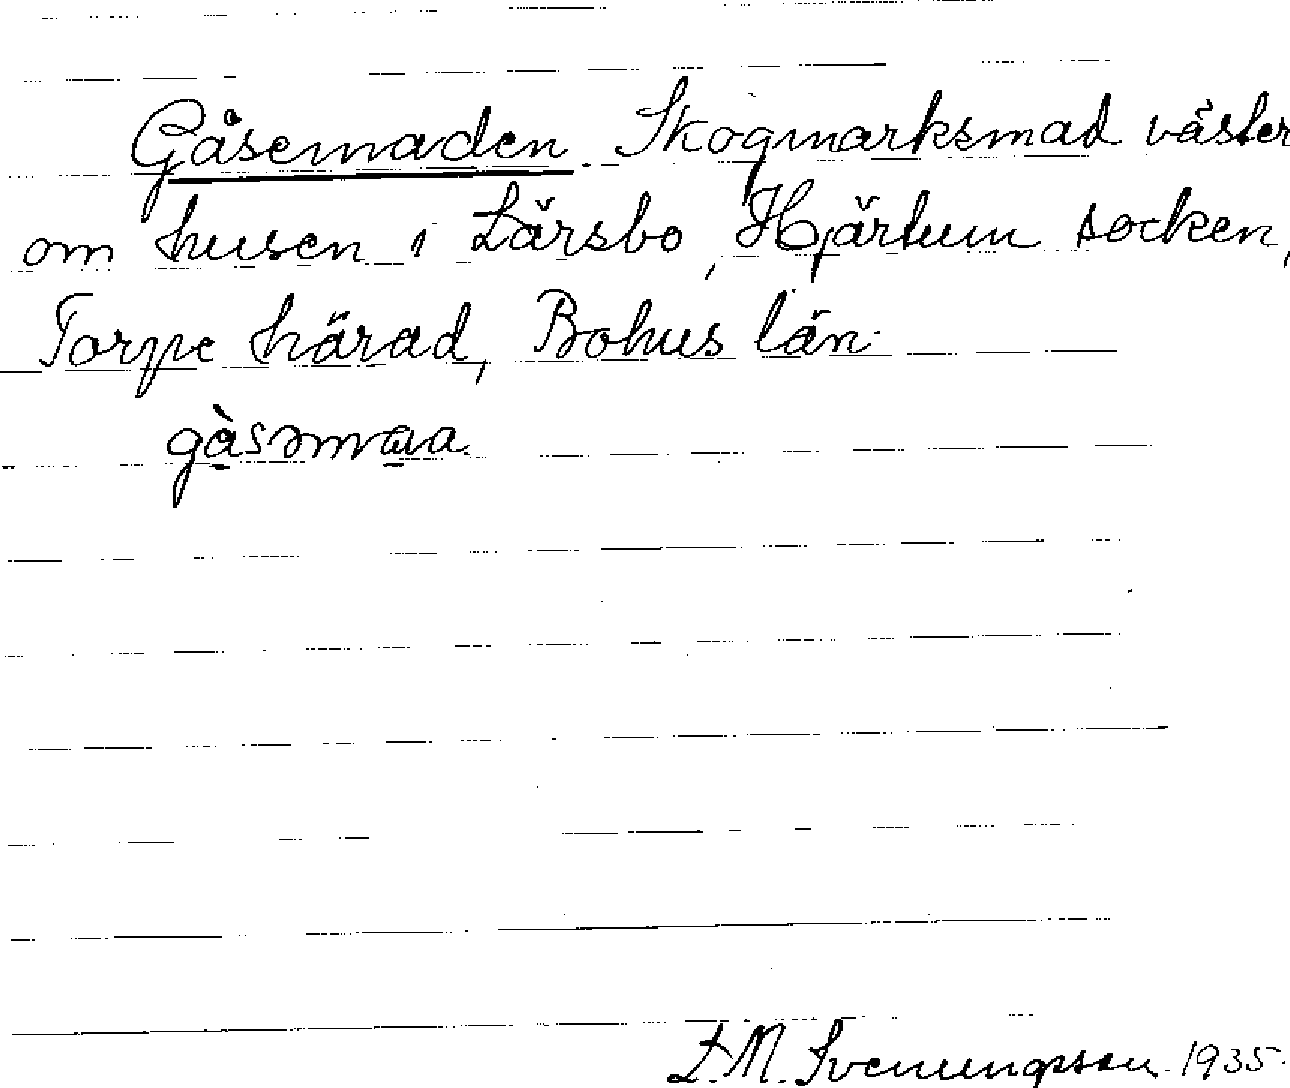 Gåsemaden. Skogmarksmad väster
om husen i Lärsbo, Hjärtum socken,
Torpe härad, Bohus län.
gå̀səmaa.
L. M. Svenungsson. 1935.